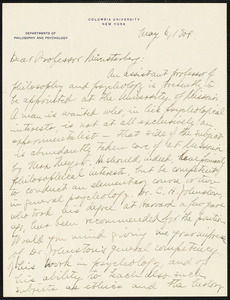 COLUMBIA UNIVERSITY
NEW YORK
DEPARTMENTS OF
PHILOSOPHY AND PSYCHOLOGY
May 6, 1904
Dear Professor Münsterberg:
An assistant professor of
philosophy and psychology is presently to
be appointed at the University of Missouri.
A man is wanted who, in his psychological
interests, is not at all exclusively an
experimentalist – that side of the subject
is abundantly taken care of at Missouri
by Max Meyer. He should, indeed, have
philosophical interest, but be competent
to conduct an elementary course
in general psychology. Dr. C. H. Johnston
who took his degree at Harvard a few years
ago, has been recommended for the position.
Would you mind giving me your
of Dr. Johnston's general competency,
of his work in psychology, and of
his ability to teach also such
subjects as ethics and the history